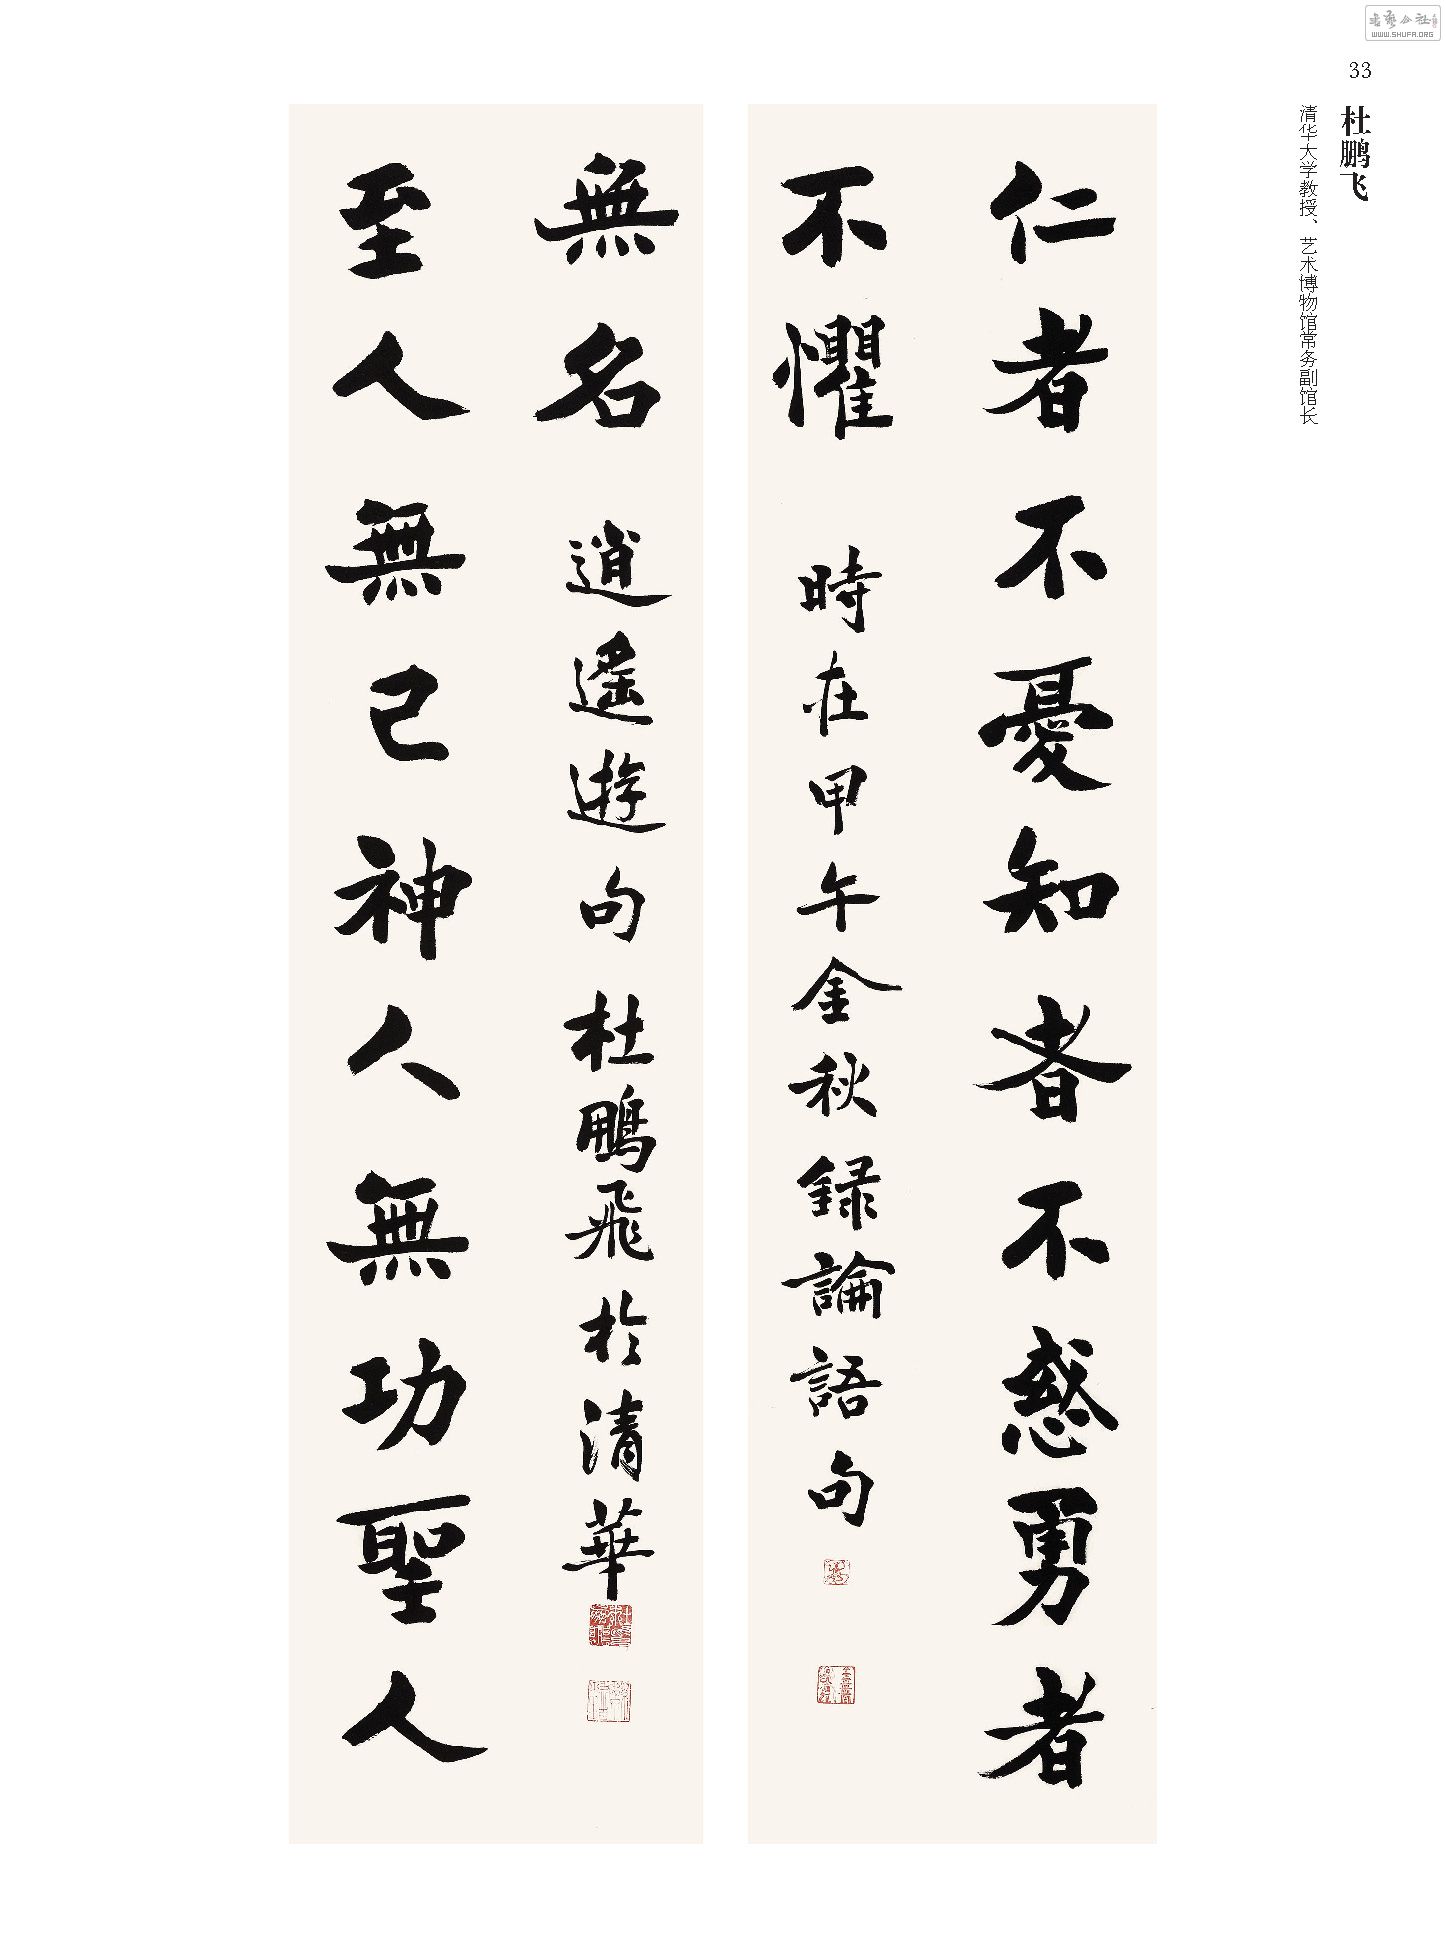 書藝公社
WWW.SHUFA.ORG
33
杜鹏飞
清华大学教授、艺术博物馆常务副馆长
仁者不憂知者不惑勇者
不懼 時在甲午金秋録論語句
至人無己神人無功聖人
無名 逍遙遊句 杜鵬飛於清華